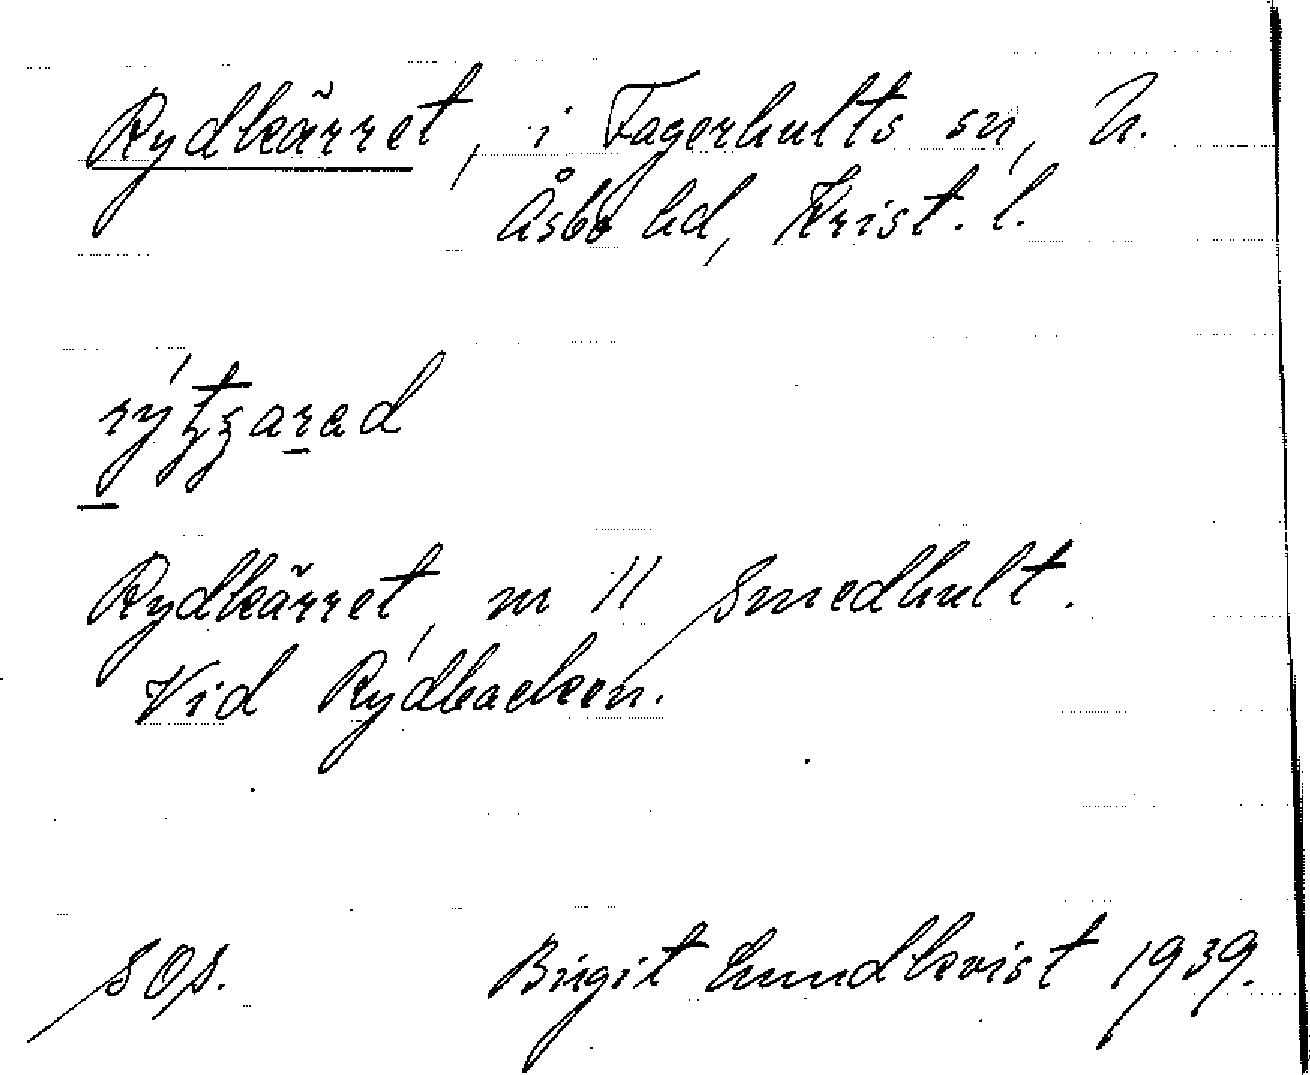 Rydkärret, i Fagerhults sn, N.
Åsbo hd, Krist. l.
Rydkärret, m 11 Smedhult.
Vid Rydbacken.
SOf.
Birgit Lundkvist 1939.